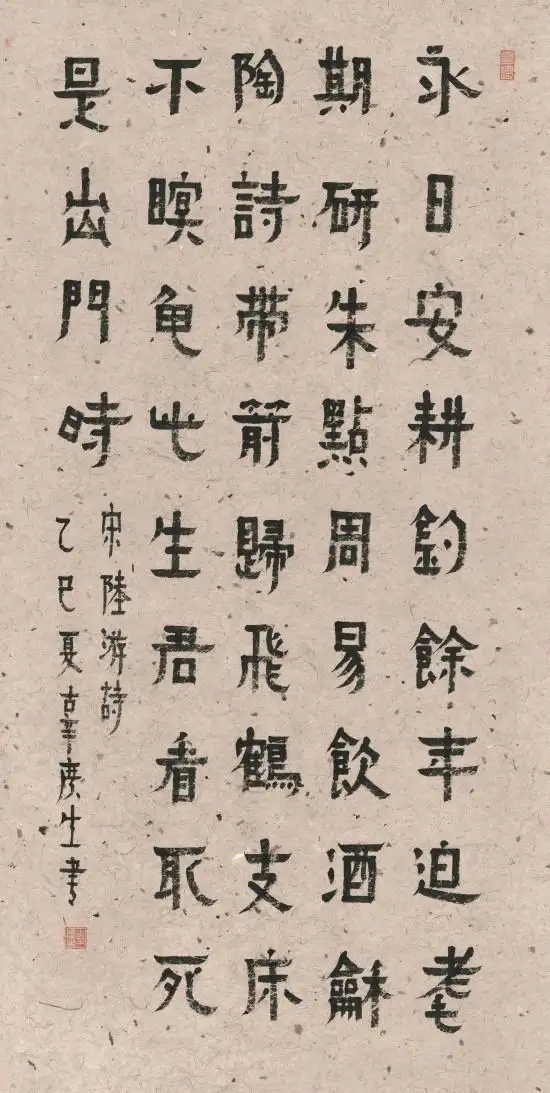 永日安耕釣餘年迫耄
期研朱點周易飲酒龢
陶詩帶箭歸飛鶴支床
不瞑龜此生君看取死
是出門時
宋陸游詩
乙巳夏辜生書